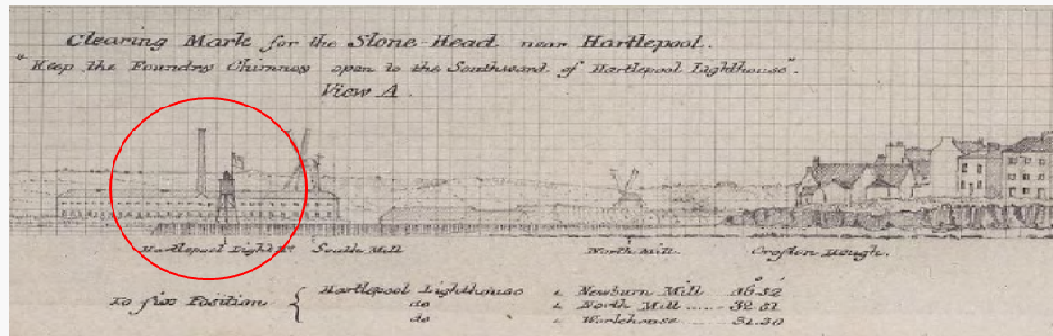 Clearing Mark for the Stone Head near Hartlepool.
"Keep the Foundry Chimney open to the Southward of Hartlepool Lighthouse".
View A.
Hartlepool Light Ho. South Mill North Mill. Crofton Heugh.
To fix Position { Hartlepool Lighthouse Newburn Mill
do North Mill
do Workhouse